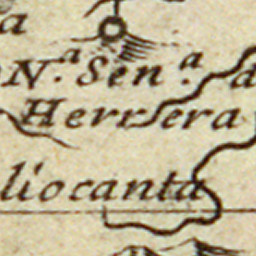 a
N.ª Sen.ª d
Herrera
liocanta